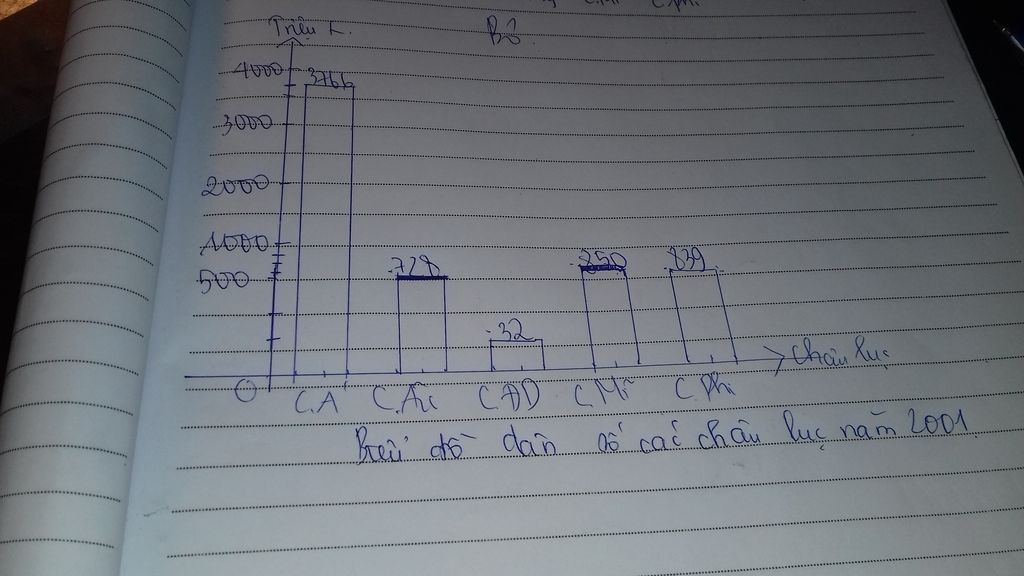 Triệu
Bđ
4000
3766
3000
2000
1000
500
728
32
850
839
O
Châu lục
C.A C.Âu C.ĐD C.Mĩ C.Phi
Biểu đồ dân số các châu lục năm 2001